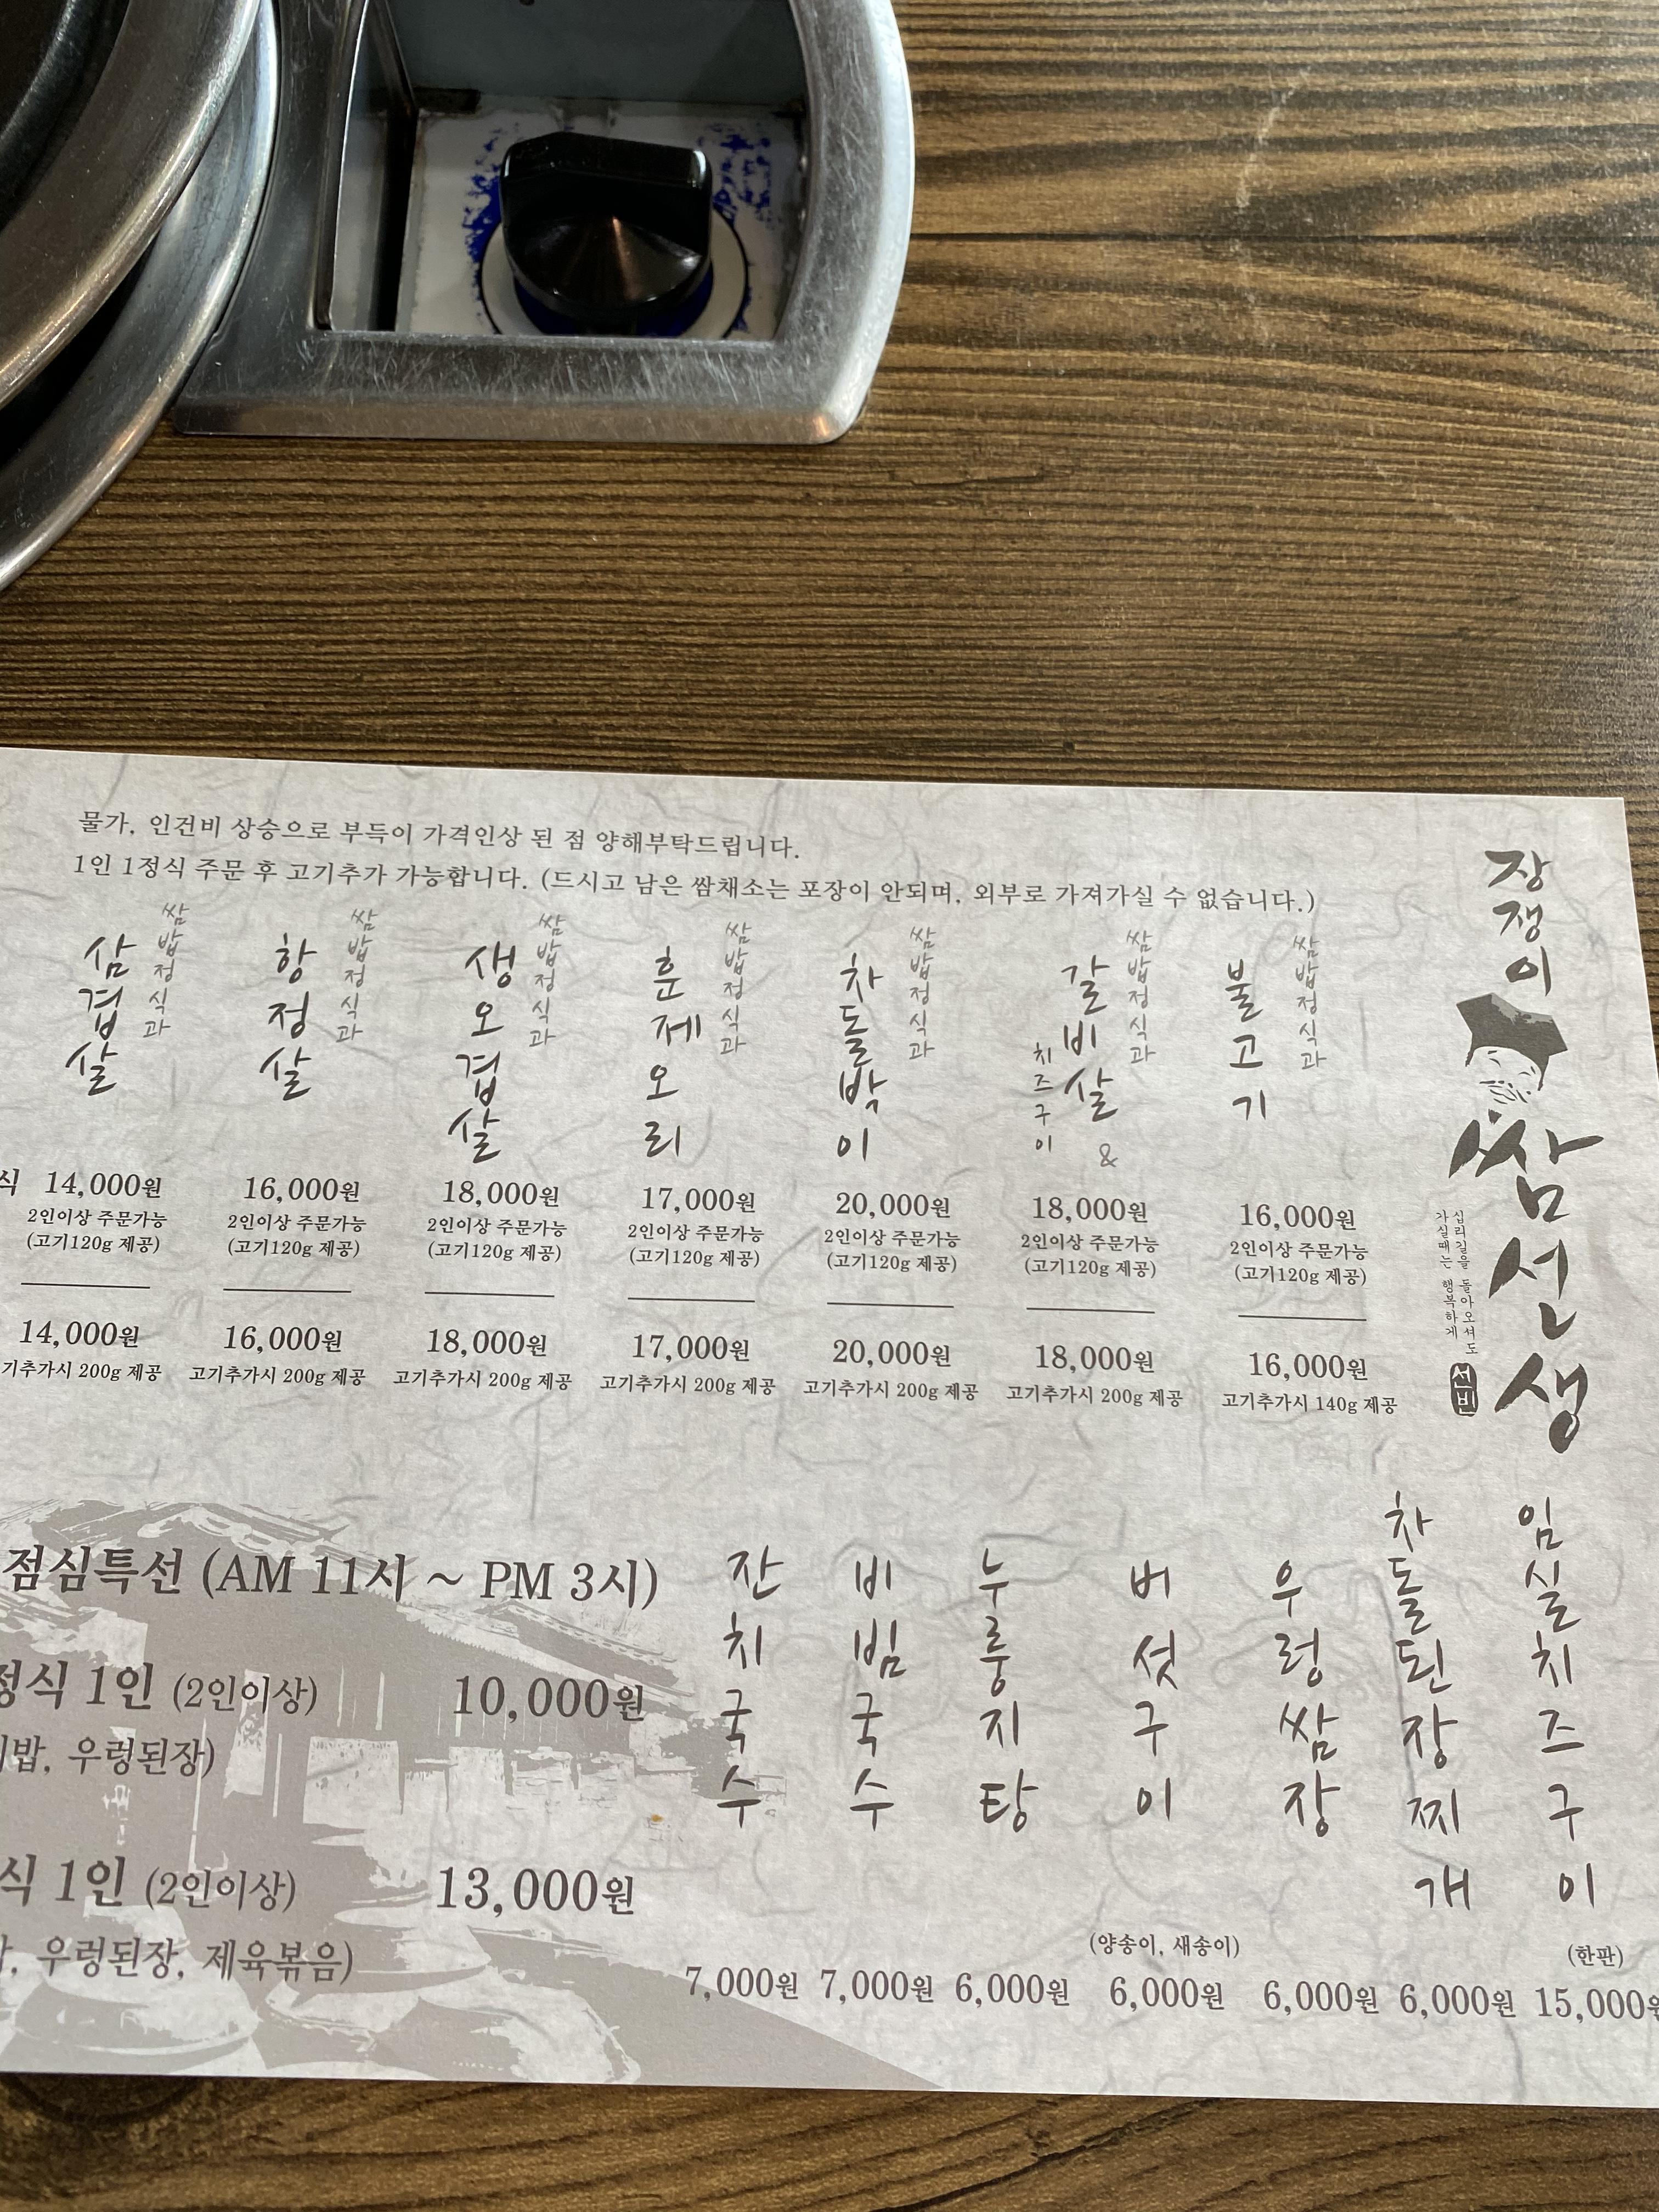 물가, 인건비 상승으로 부득이 가격인상 된 점 양해부탁드립니다.
1인 1정식 주문 후 고기추가 가능합니다. (드시고 남은 쌈채소는 포장이 안되며, 외부로 가져가실 수 없습니다.)
장쟁이
쌈선생
십리길을 돌아오셔도
가실때는 행복하게
선비
쌈밥정식과
불고기
16,000원
2인이상 주문가능
(고기120g 제공)
16,000원
고기추가시 140g 제공
쌈밥정식과
갈비살 &
치즈구이
18,000원
2인이상 주문가능
(고기120g 제공)
18,000원
고기추가시 200g 제공
쌈밥정식과
차돌박이
20,000원
2인이상 주문가능
(고기120g 제공)
20,000원
고기추가시 200g 제공
쌈밥정식과
훈제오리
17,000원
2인이상 주문가능
(고기120g 제공)
17,000원
고기추가시 200g 제공
쌈밥정식과
생오겹살
18,000원
2인이상 주문가능
(고기120g 제공)
18,000원
고기추가시 200g 제공
쌈밥정식과
항정살
16,000원
2인이상 주문가능
(고기120g 제공)
16,000원
고기추가시 200g 제공
쌈밥정식과
삼겹살
식 14,000원
2인이상 주문가능
(고기120g 제공)
14,000원
기추가시 200g 제공
임실치즈구이
(한판)
15,000원
차돌된장찌개
6,000원
우렁쌈장
6,000원
버섯구이
(양송이, 새송이)
6,000원
누룽지탕
6,000원
비빔국수
7,000원
잔치국수
7,000원
점심특선 (AM 11시 ~ PM 3시)
정식 1인 (2인이상) 10,000원
밥, 우렁된장)
식 1인 (2인이상) 13,000원
우렁된장, 제육볶음)